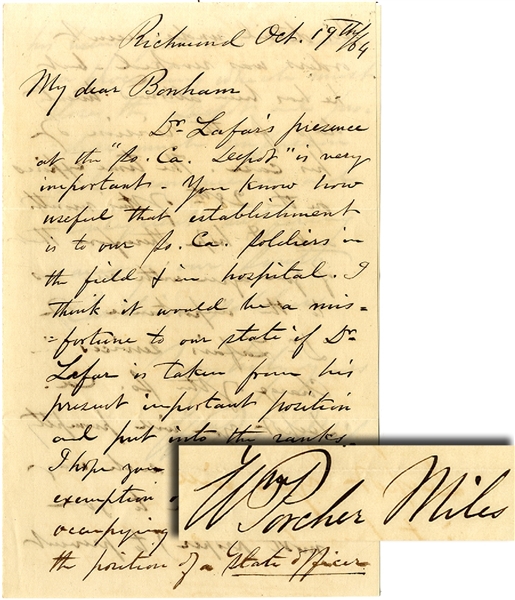 Richmond Oct. 19th/64
My dear Bonham
Dr Lafar's presence
at the "So. Ca. Depot" is very
important - You know how
useful that establishment
is to our So. Ca. Soldiers in
the field & in hospital. I
think it would be a mis=
=fortune to our state if Dr
Lafar is taken from his
present important position
and put into the ranks.
I hope you
exemption
occupying
the position of a State officer
Wm Porcher Miles